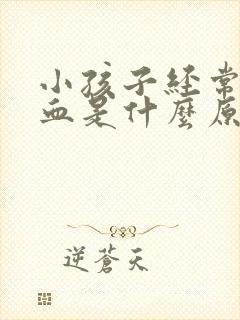 小孩子經常
血是什麼原
逆蒼天